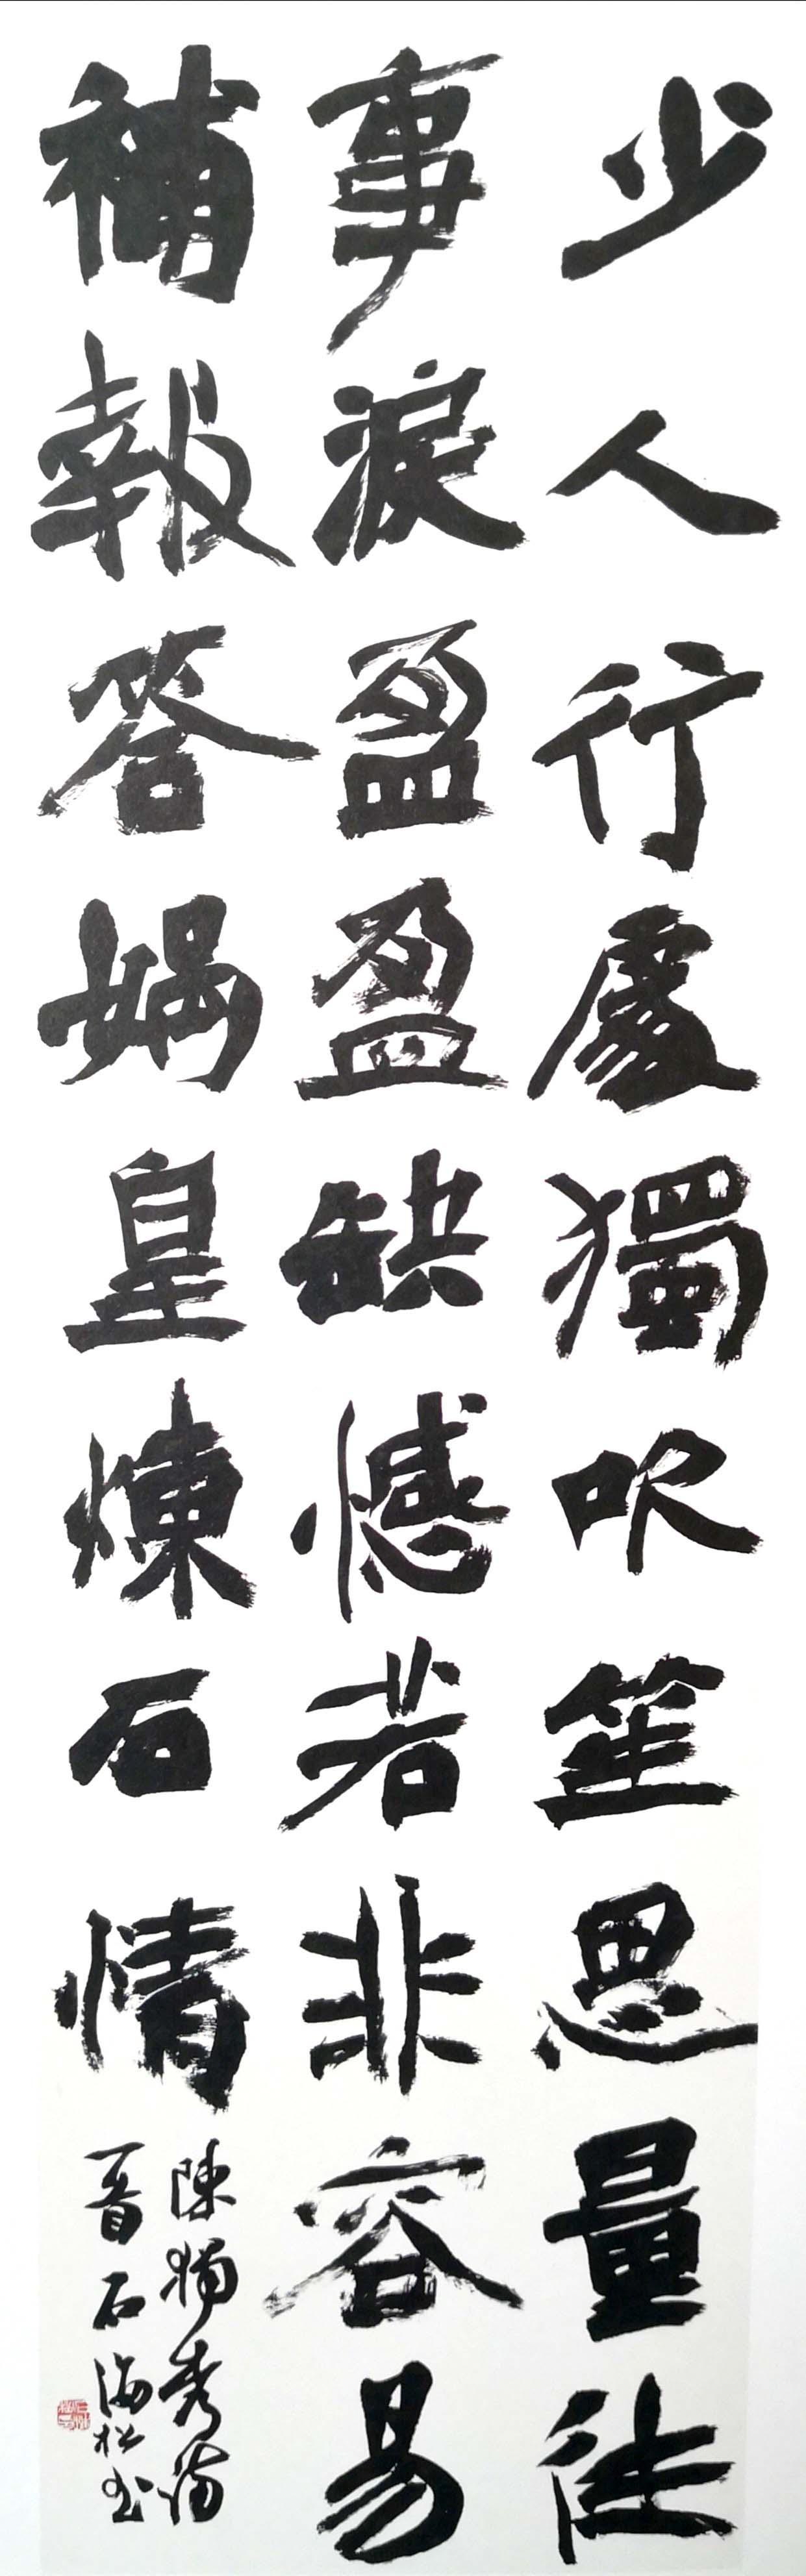 少人行處獨吹笙思量往
事淚盈盈缺憾若非容易
補報答媧皇煉石情
陳獨秀詩
晉石海松书